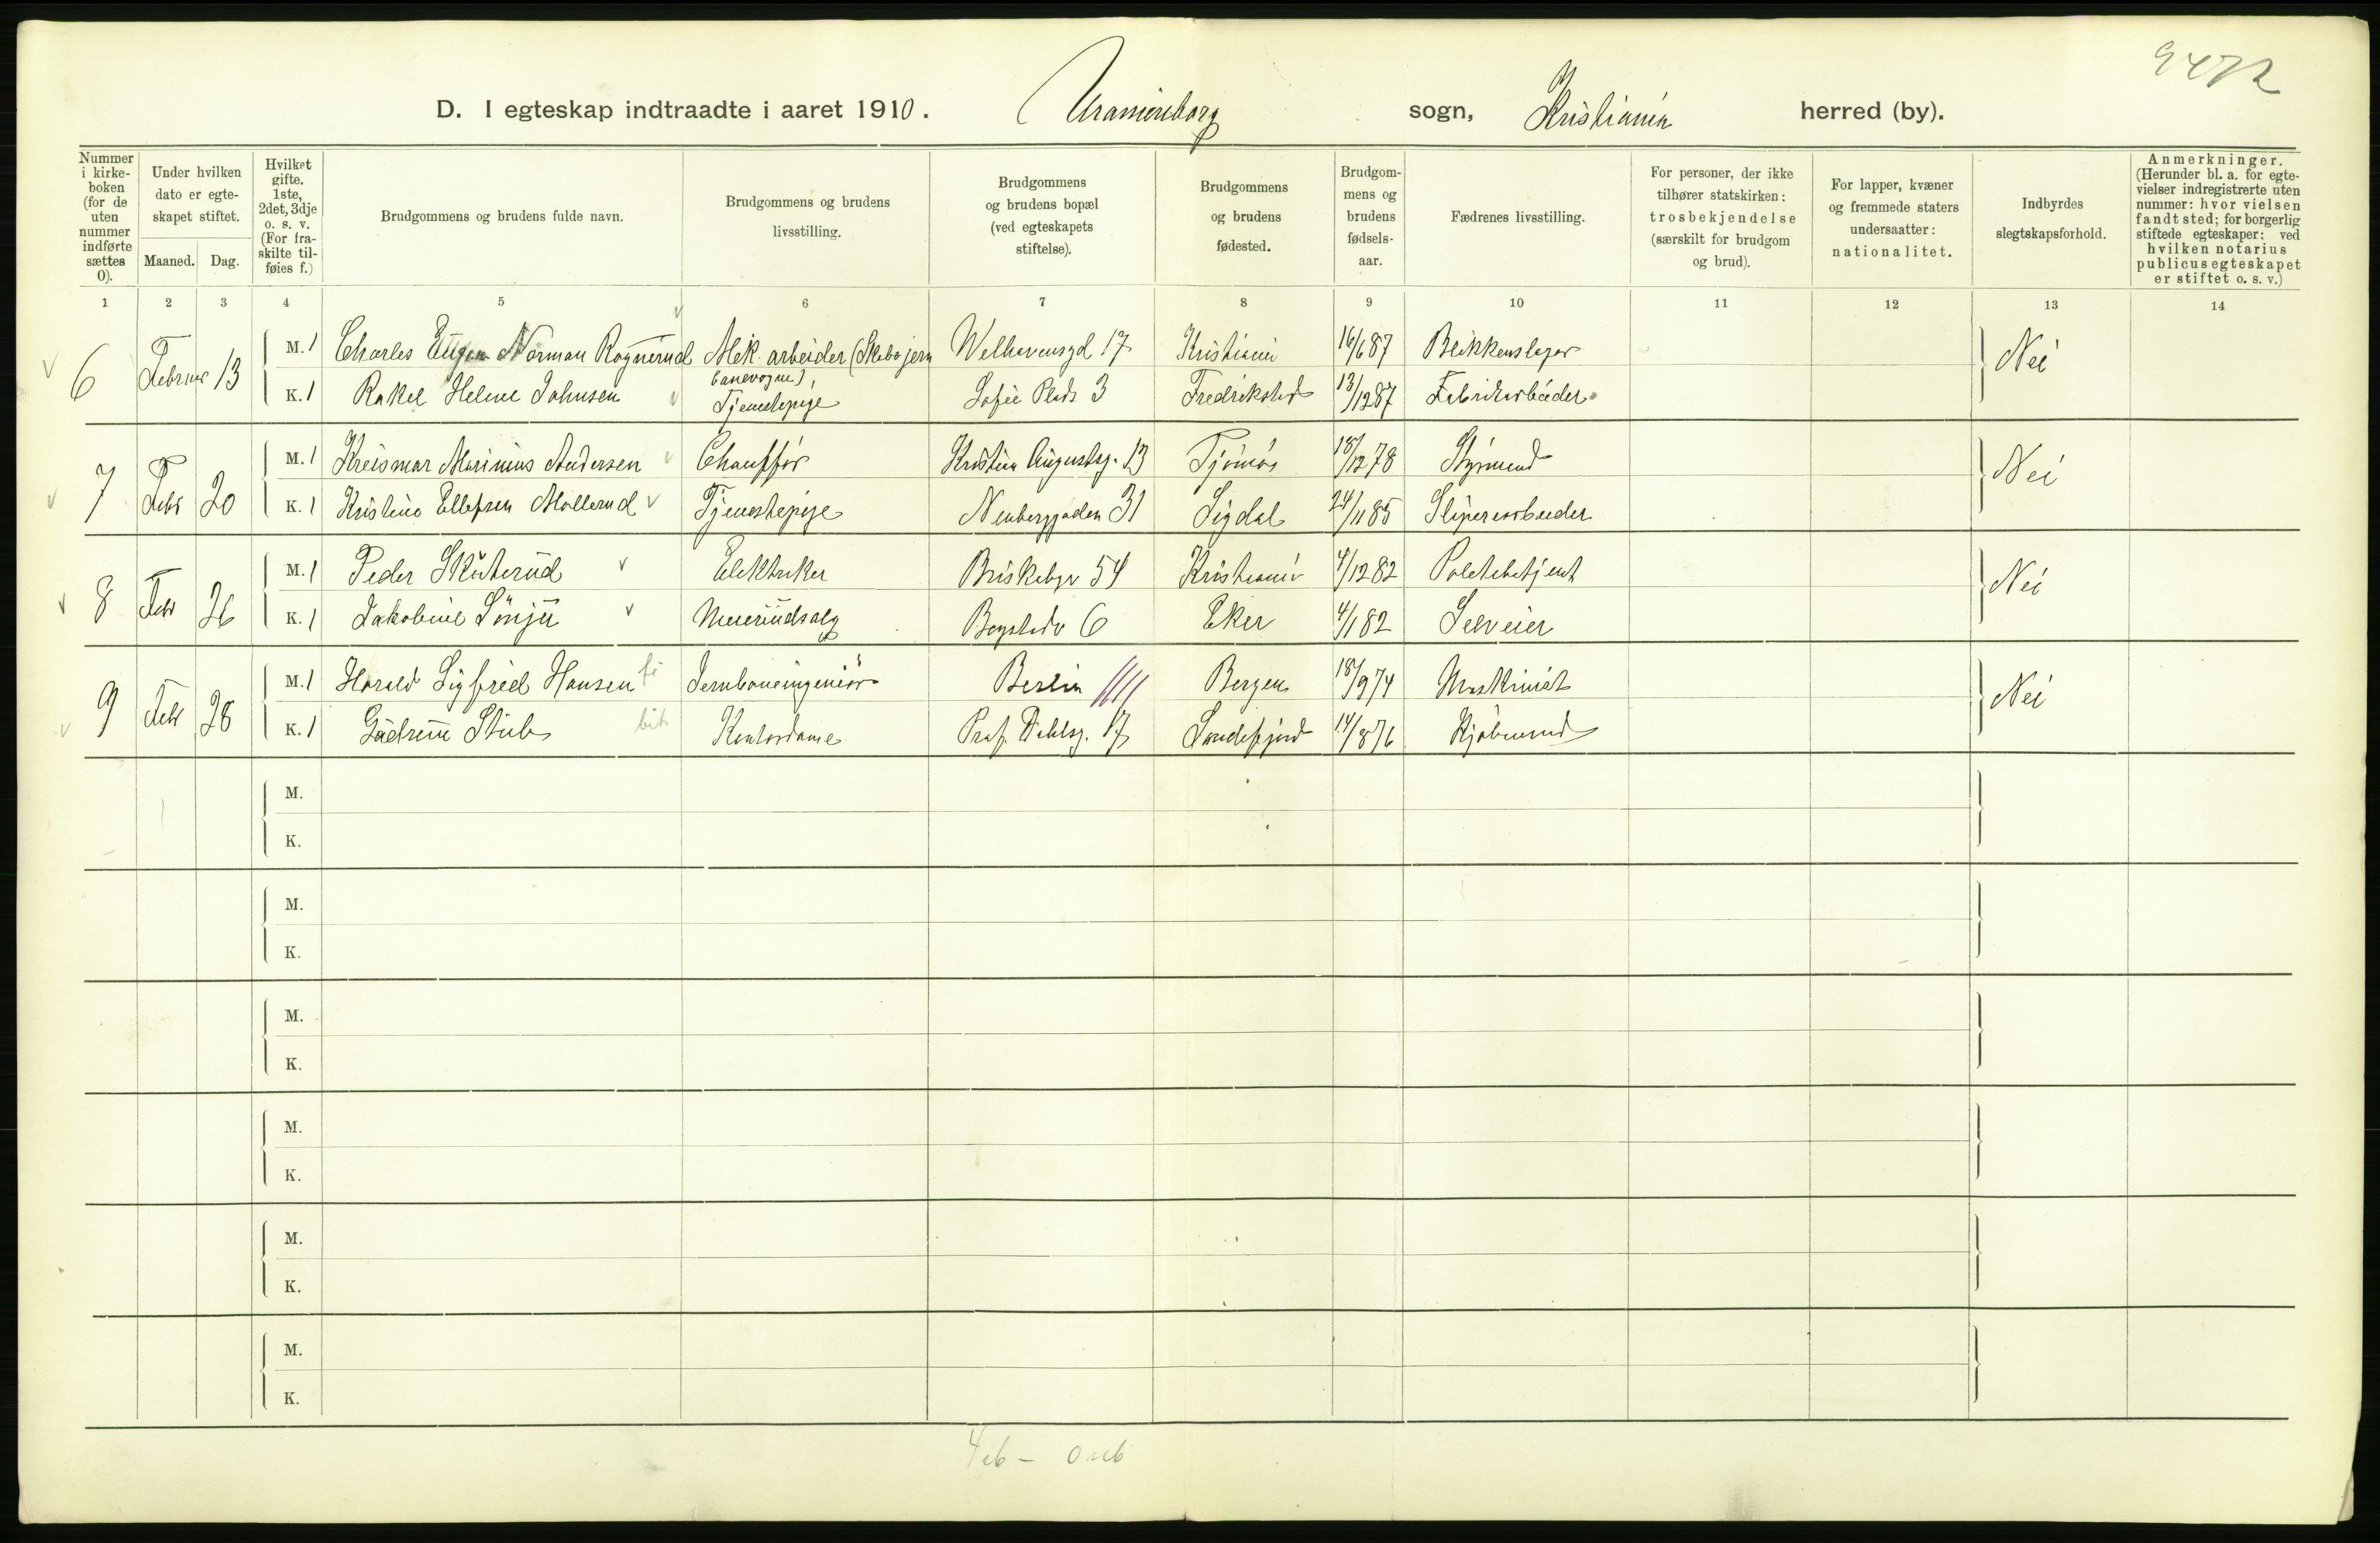 9472
D. I egteskap indtraadte i aaret 1910. Uranienborg sogn, Kristiania herred (by).
Nummer i kirkeboken (for de uten nummer indførte sættes 0).
Under hvilken dato er egteskapet stiftet.
Maaned. Dag.
Hvilket gifte. 1ste, 2det, 3dje o. s. v. (For fraskilte tilføies f.)
Brudgommens og brudens fulde navn.
Brudgommens og brudens livsstilling.
Brudgommens og brudens bopæl (ved egteskapets stiftelse).
Brudgommens og brudens fødested.
Brudgommens og brudens fødselsaar.
Fædrenes livsstilling.
For personer, der ikke tilhører statskirken: trosbekjendelse (særskilt for brudgom og brud).
For lapper, kvæner og fremmede staters undersaatter: nationalitet.
Indbyrdes slegtskapsforhold.
Anmerkninger. (Herunder bl. a. for egtevielser indregistrerte uten nummer: hvor vielsen fandt sted; for borgerlig stiftede egteskaper: ved hvilken notarius publicus egteskapet er stiftet o. s. v.)
1 2 3 4 5 6 7 8 9 10 11 12 13 14
6 Februar 13 M. 1 Charles Eugen Norman Rognerud Mek. arbeider (Skabo jernbanevogne) Welhavensgd 17 Kristiania 16/6 87 Blikkenslager Nei
K. 1 Rakel Helene Johnsen Tjenestepige Sofie Plads 3 Fredrikstad 13/12 87 Fabrikarbeider
7 Febr 20 M. 1 Kreismar Marinius Andersen Chauffør Kristian Augustsg. 13 Tjømø 18/12 78 Styrmand Nei
K. 1 Kristine Ellefsen Mollerud Tjenestepige Neuberggaden 31 Sigdal 24/11 85 Sliperiarbeider
8 Febr 26 M. 1 Peder Skuterud Elektriker Briskebyv 54 Kristiania 4/12 82 Politibetjent Nei
K. 1 Jakobine Sønju Meieriudsalg Bogstadv 6 Eker 4/1 82 Selveier
9 Febr 28 M. 1 Harald Sigfried Hansen Jernbaneingeniør Berlin Bergen 18/9 74 Maskinist Nei
K. 1 Gudrun Stub Kontordame Prof. Dahlsg. 17 Sandefjord 14/8 76 Kjøbmand
M.
K.
M.
K.
M.
K.
M.
K.
M.
K.
M.
K.